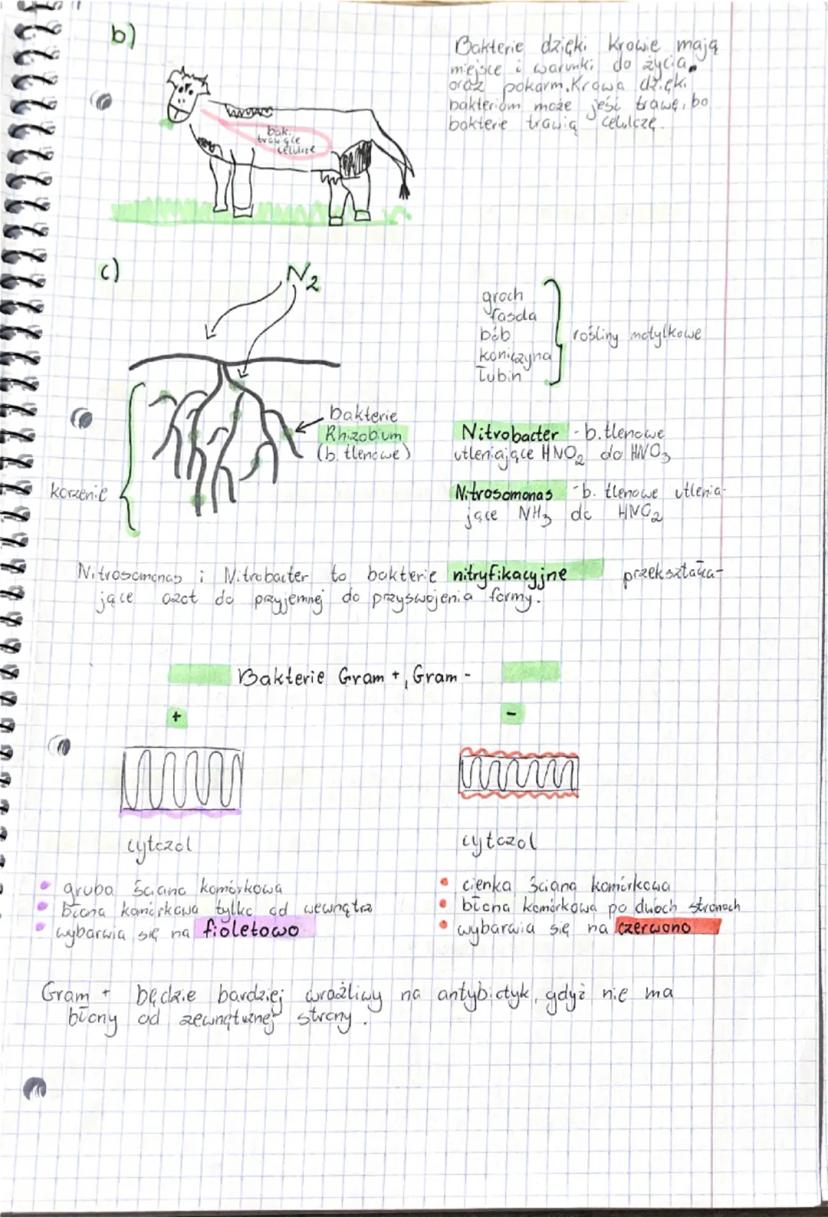 b)
Bakterie dzięki krowie mają
miejsce i warunki do życia,
oraz pokarm. Krowa dzięki
bakteriom może jeść trawę, bo
bakterie trawią celulozę.
bak.
trawiące
celulozę
c)
N2
groch
fasola
bób
koniczyna
łubin
rośliny motylkowe
bakterie
Rhizobium
(b. tlenowe)
korzenie
Nitrobacter - b. tlenowe
utleniające HNO2 do HNO3
Nitrosomonas - b. tlenowe utlenia-
jące NH3 do HNO2
Nitrosomonas i Nitrobacter to bakterie nitryfikacyjne przekształca-
jące azot do przyjemnej do przyswojenia formy.
Bakterie Gram +, Gram -
+
-
cytozol
cytozol
• gruba ściana komórkowa
• błona komórkowa tylko od wewnątrz
• wybarwia się na fioletowo
• cienka ściana komórkowa
• błona komórkowa po dwóch stronach
• wybarwia się na czerwono
Gram + będzie bardziej wrażliwy na antybiotyk, gdyż nie ma
błony od zewnętrznej strony.